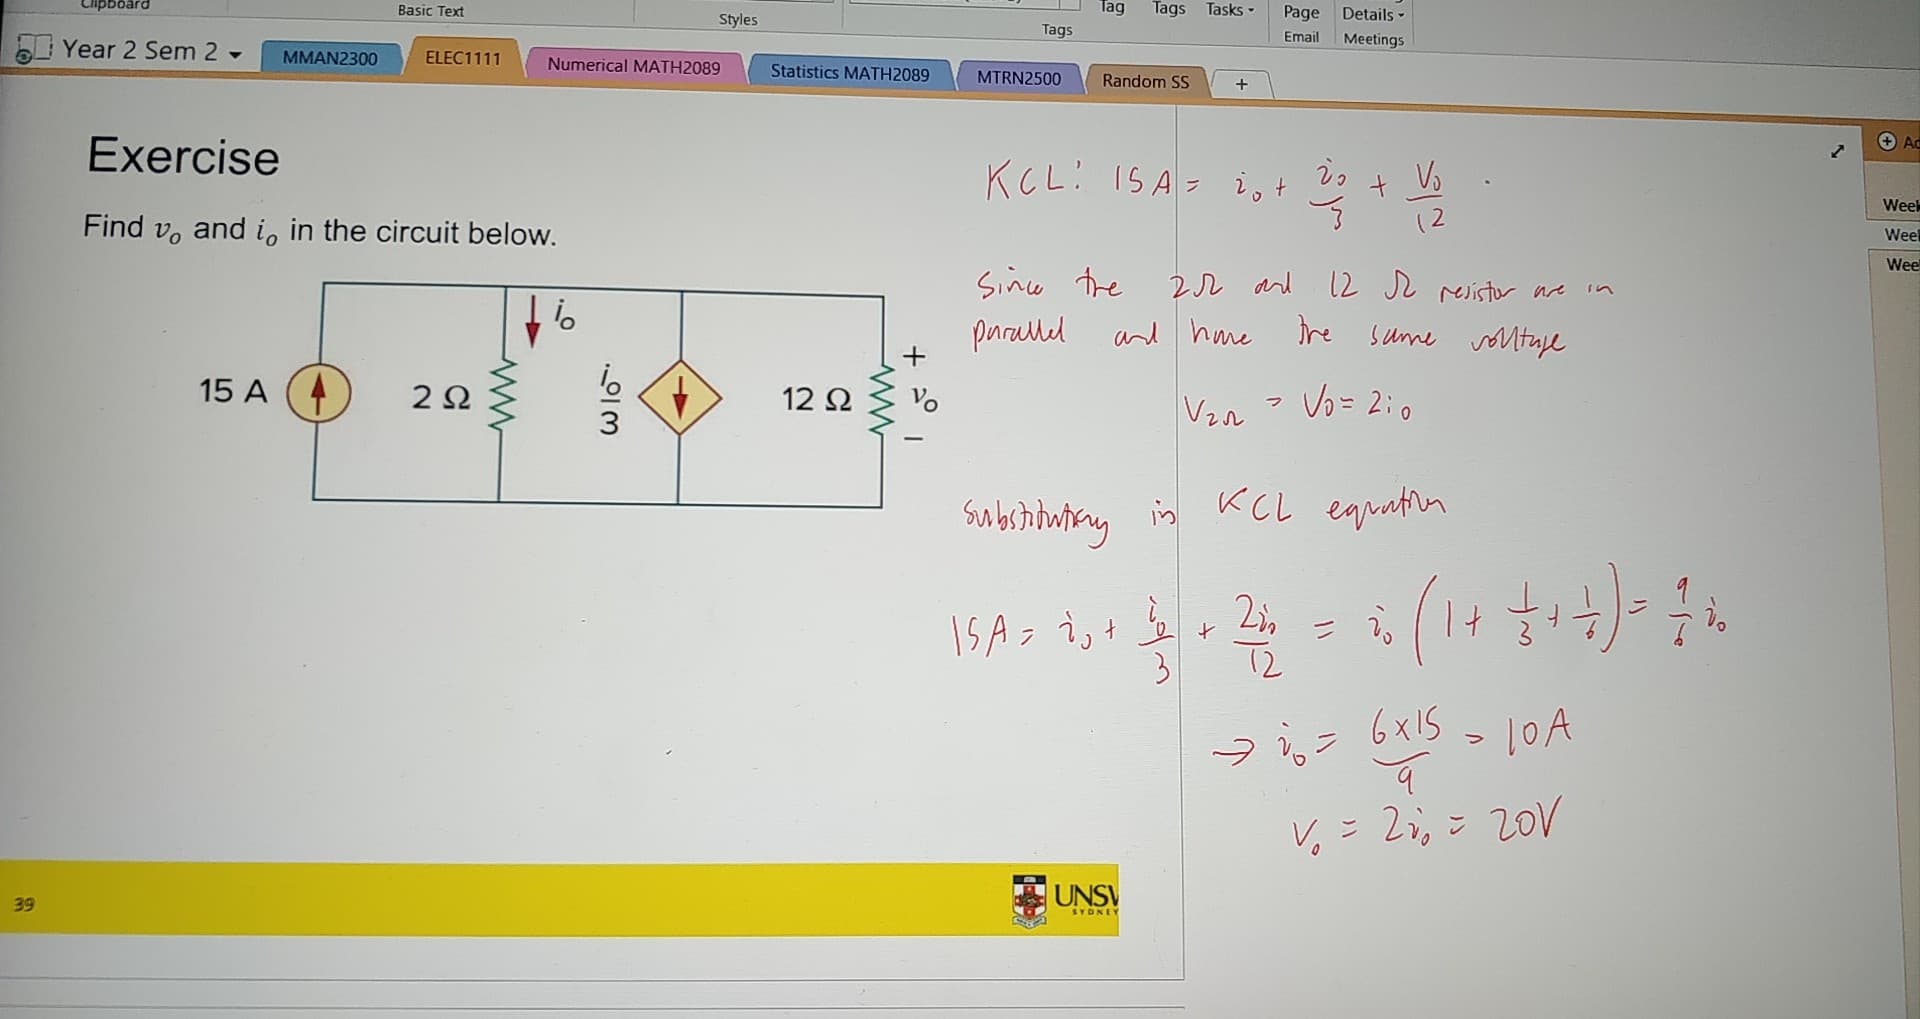 Clipboard
Basic Text
Styles
Tags
Tag Tags Tasks
Page Details
Email Meetings
Year 2 Sem 2
MMAN2300
ELEC1111
Numerical MATH2089
Statistics MATH2089
MTRN2500
Random SS
+
Exercise
Find vₒ and iₒ in the circuit below.
15 A
2 Ω
iₒ
iₒ/3
12 Ω
+
vₒ
−
39
UNSW
SYDNEY
KCL: 15A = i₀ + i₀/3 + V₀/12
Since the 2Ω and 12 Ω resistor are in
parallel and have the same voltage
V₂Ω = V₀ = 2i₀
Substituting in KCL equation
15A = i₀ + i₀/3 + 2i₀/12 = i₀ (1 + 1/3 + 1/6) = 9/6 i₀
→ i₀ = 6x15/9 = 10A
V₀ = 2i₀ = 20V
Week
Week
Week